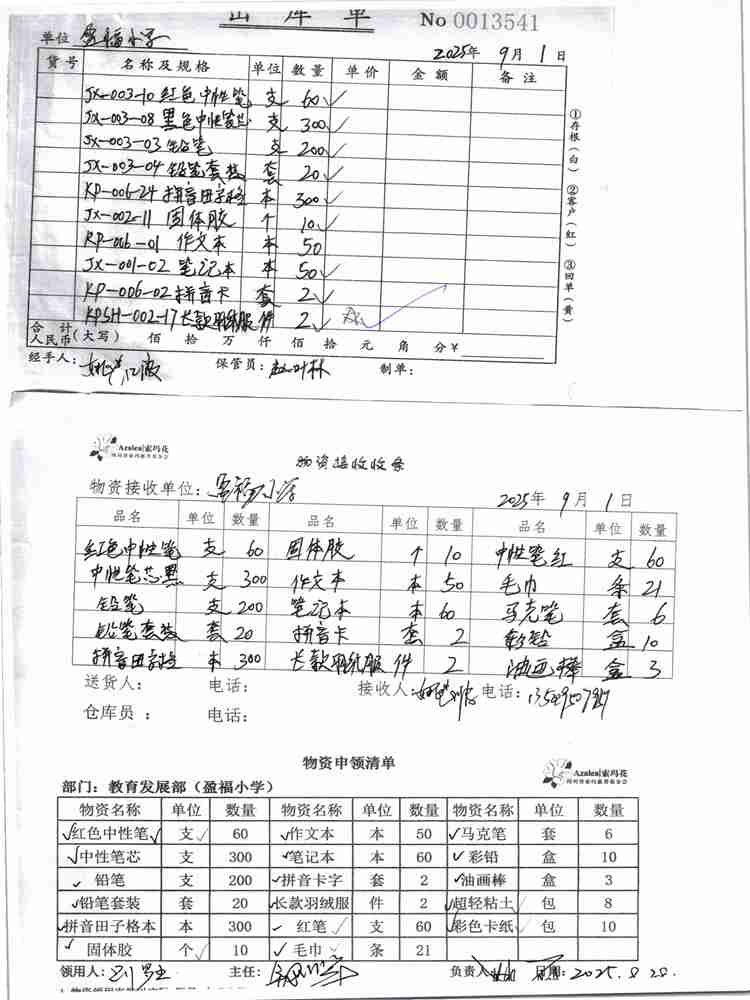 出库单 No 0013541
单位 盈福小学 2025年 9月 1日
货号 名称及规格 单位 数量 单价 金额 备注
JX-003-10 红色中性笔 支 60 ✓
JX-003-08 黑色中性笔芯 支 300 ✓
JX-003-03 铅笔 支 200 ✓
JX-003-04 铅笔套装 套 20 ✓
KP-006-24 拼音田字格 本 300 ✓
JX-002-11 固体胶 个 10 ✓
KP-006-01 作文本 本 50
JX-001-02 笔记本 本 50 ✓
KP-006-02 拼音卡 套 2 ✓
KPSH-002-17 长款羽绒服 件 2 ✓
合计人民币(大写) 佰 拾 万 仟 佰 拾 元 角 分 ¥
经手人: 保管员: 制单:
①存根(白) ②客户(红) ③回单(黄)
Azalea|索玛花
物资接收收条
物资接收单位: 盈福小学 2025年 9月 1日
品名 单位 数量 品名 单位 数量 品名 单位 数量
红色中性笔 支 60 固体胶 个 10 中性笔红 支 60
中性笔芯黑 支 300 作文本 本 50 毛巾 条 21
铅笔 支 200 笔记本 本 60 马克笔 套 6
铅笔套装 套 20 拼音卡 套 2 彩铅 盒 10
拼音田字格 本 300 长款羽绒服 件 2 油画棒 盒 3
送货人: 电话: 接收人: 电话:
仓库员 : 电话:
物资申领清单
Azalea|索玛花
部门: 教育发展部(盈福小学)
物资名称 单位 数量 物资名称 单位 数量 物资名称 单位 数量
✓红色中性笔✓ 支✓ 60 ✓作文本 本 50 ✓马克笔 套 6
✓中性笔芯 支 300 ✓笔记本 本 60 ✓彩铅 盒 10
✓铅笔 支 200 ✓拼音卡字 套 2 ✓油画棒 盒 3
✓铅笔套装 套 20 ✓长款羽绒服 件 2 ✓超轻粘土✓ 包 8
✓拼音田子格本 本 300 ✓红笔✓ 支 60 ✓彩色卡纸✓ 包 10
✓固体胶 个✓ 10 ✓毛巾✓ 条 21
领用人: 主任: 负责人: 日期: 2025.8.28.